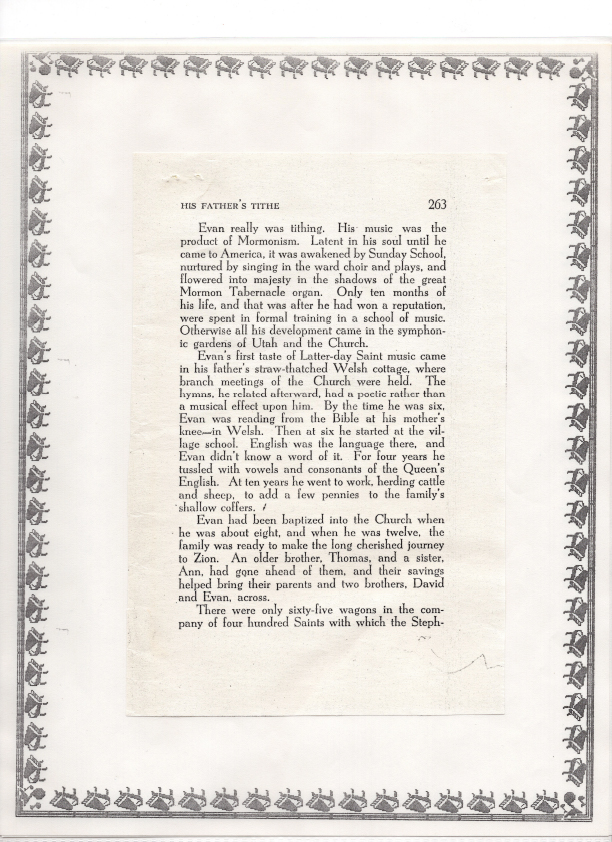 HIS FATHER'S TITHE 263
Evan really was tithing. His music was the
product of Mormonism. Latent in his soul until he
came to America, it was awakened by Sunday School,
nurtured by singing in the ward choir and plays, and
flowered into majesty in the shadows of the great
Mormon Tabernacle organ. Only ten months of
his life, and that was after he had won a reputation,
were spent in formal training in a school of music.
Otherwise all his development came in the symphon-
ic gardens of Utah and the Church.
Evan's first taste of Latter-day Saint music came
in his father's straw-thatched Welsh cottage, where
branch meetings of the Church were held. The
hymns, he related afterward, had a poetic rather than
a musical effect upon him. By the time he was six,
Evan was reading from the Bible at his mother's
knee—in Welsh. Then at six he started at the vil-
lage school. English was the language there, and
Evan didn't know a word of it. For four years he
tussled with vowels and consonants of the Queen's
English. At ten years he went to work, herding cattle
and sheep, to add a few pennies to the family's
shallow coffers.
Evan had been baptized into the Church when
he was about eight, and when he was twelve, the
family was ready to make the long cherished journey
to Zion. An older brother, Thomas, and a sister,
Ann, had gone ahead of them, and their savings
helped bring their parents and two brothers, David
and Evan, across.
There were only sixty-five wagons in the com-
pany of four hundred Saints with which the Steph-